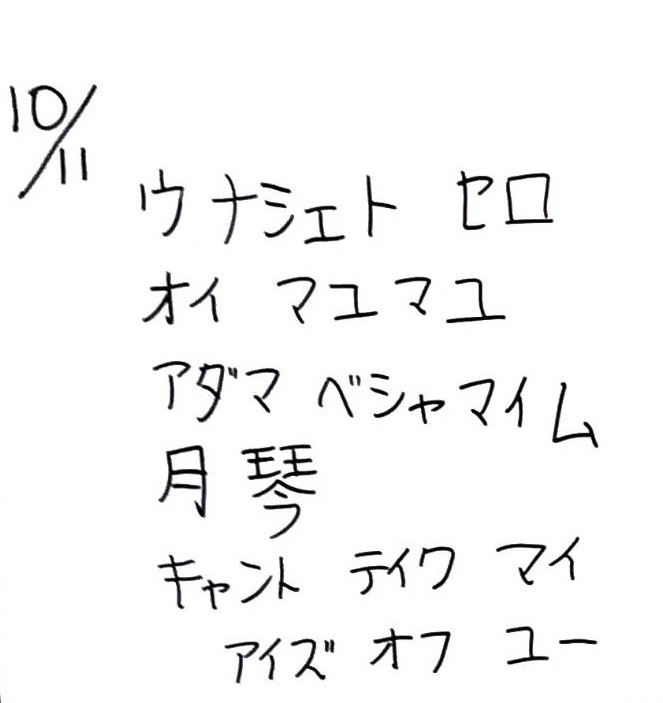 10/11
ウナシェト セロ
オイ マユマユ
アダマ ベシャマイム
月琴
キャント テイク マイ
アイズ オフ ユー